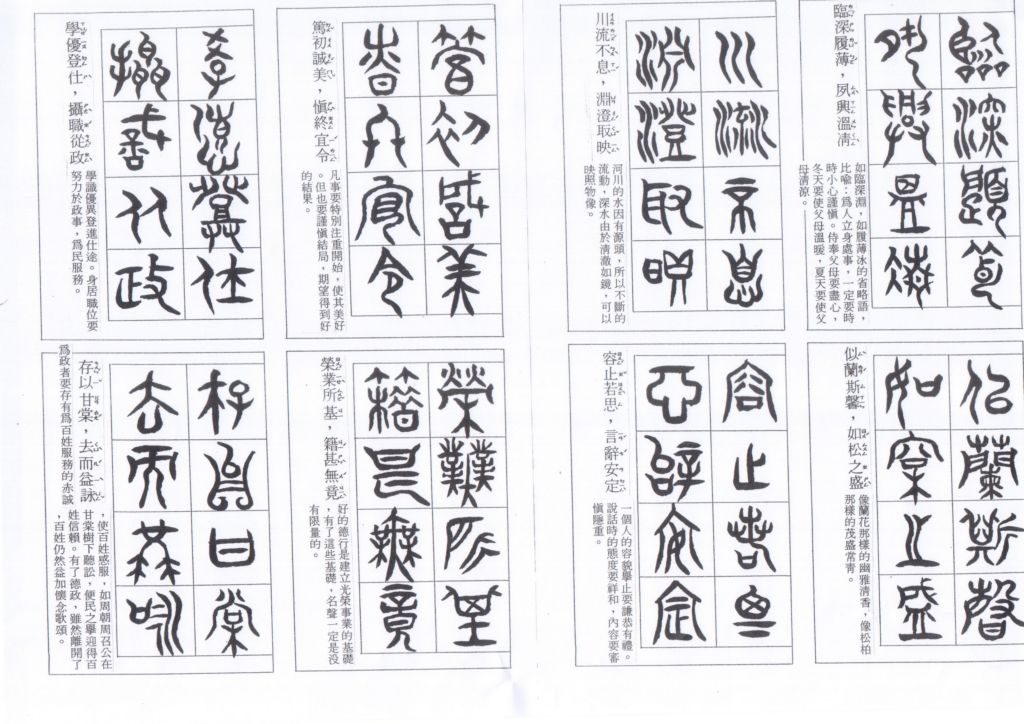 臨深履薄
夙興溫凊
臨深履薄，夙興溫凊
如臨深淵，如履薄冰的省略語，
比喻：爲人立身處事，一定要時
時小心謹愼。侍奉父母要盡心，
冬天要使父母溫暖，夏天要使父
母淸涼。
似蘭斯馨
如松之盛
似蘭斯馨，如松之盛
像蘭花那樣的幽雅清香，像松柏
那樣的茂盛常靑。
川流不息
淵澄取映
川流不息，淵澄取映
河川的水因有源頭，所以不斷的
流動，深水由於清澈如鏡，可以
映照物像。
容止若思
言辭安定
容止若思，言辭安定
一個人的容貌舉止要謙恭有禮。
說話時的態度要祥和，內容要審
愼隱重。
篤初誠美
愼終宜令
篤初誠美，愼終宜令
凡事要特別注重開始，使其美好
。但也要謹愼結局，期望得到好
的結果。
榮業所基
籍甚無竟
榮業所基，籍甚無竟
好的德行是建立光榮事業的基礎
，有了這些基礎，名聲一定是没
有限量的。
學優登仕
攝職從政
學優登仕，攝職從政
學識優異登進仕途。身居職位要
努力於政事，爲民服務。
存以甘棠
去而益詠
存以甘棠，去而益詠
爲政者要存有爲百姓服務的赤誠
，使百姓感服，如周朝周召公在
甘棠樹下聽訟，便民之擧迎得百
姓信賴。有了德政，雖然離開了
，百姓仍然益加懷念歌頌。